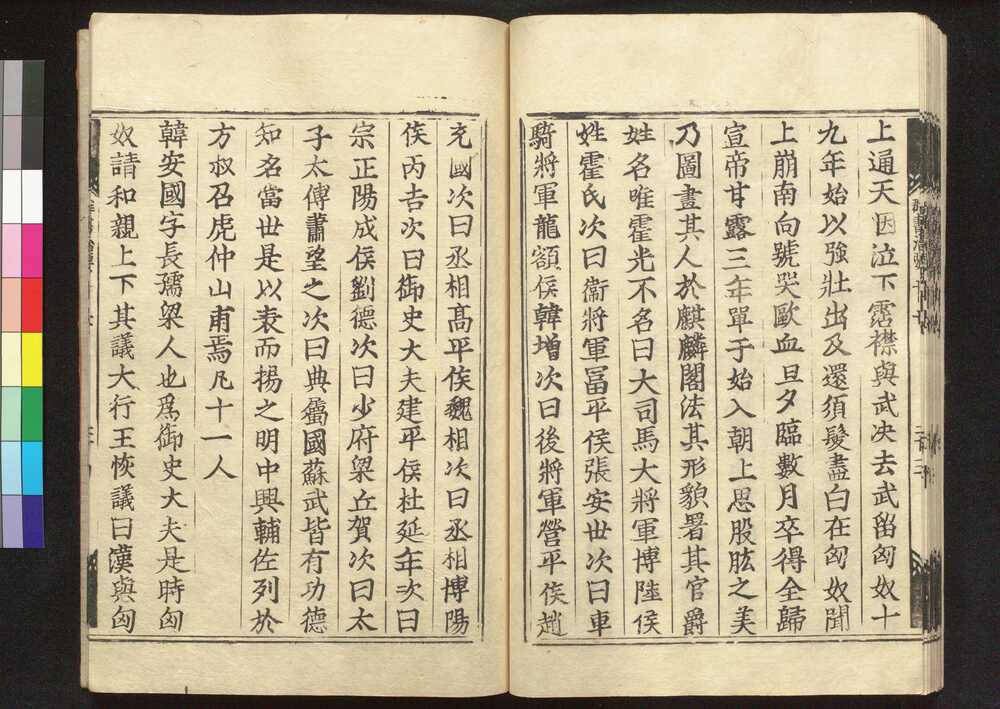 上通天因泣下霑襟與武决去武留匈奴十
九年始以強壯出及還須髮盡白在匈奴聞
上崩南向號哭歐血旦夕臨數月卒得全歸
宣帝甘露三年單于始入朝上思股肱之美
乃圖畫其人於麒麟閣法其形貌署其官爵
姓名唯霍光不名曰大司馬大將軍博陸侯
姓霍氏次曰衞將軍冨平侯張安世次曰車
騎將軍龍額侯韓增次曰後將軍營平侯趙
充國次曰丞相髙平侯魏相次曰丞相博陽
侯丙吉次曰御史大夫建平侯杜延年次曰
宗正陽成侯劉德次曰少府梁丘賀次曰太
子太傅蕭望之次曰典屬國蘇武皆有功德
知名當世是以表而揚之明中興輔佐列於
方叔召虎仲山甫焉凡十一人
韓安國字長孺梁人也爲御史大夫是時匈
奴請和親上下其議大行王恢議曰漢與匈